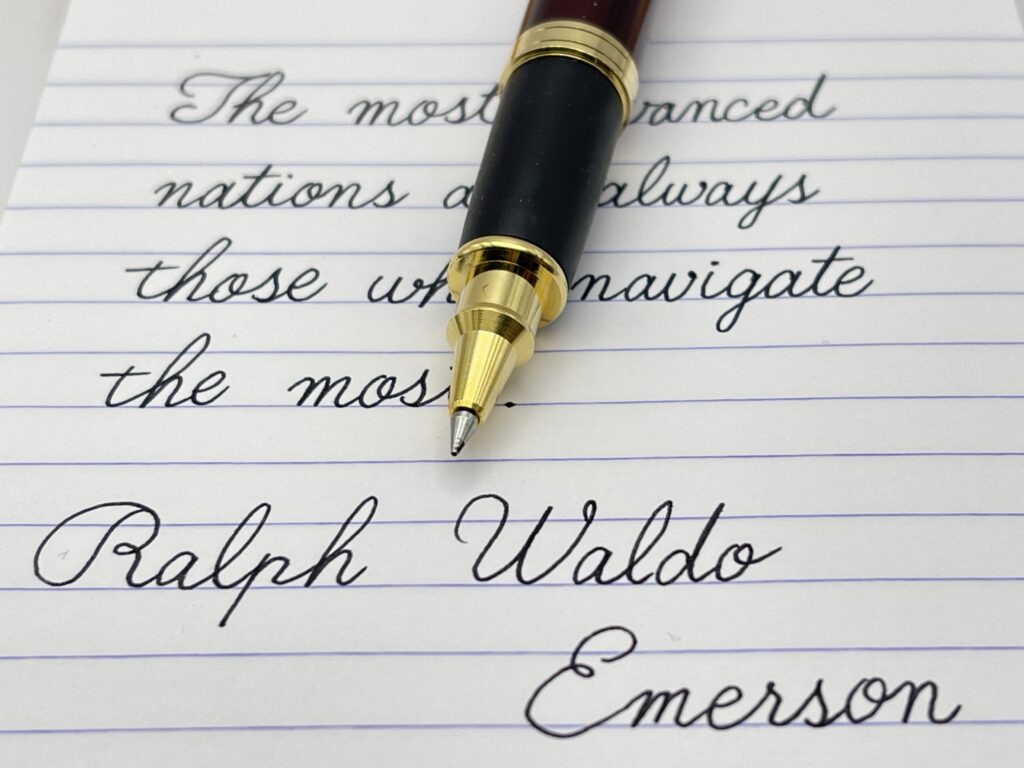 The most
nations always
those navigate
the
Ralph Waldo
Emerson